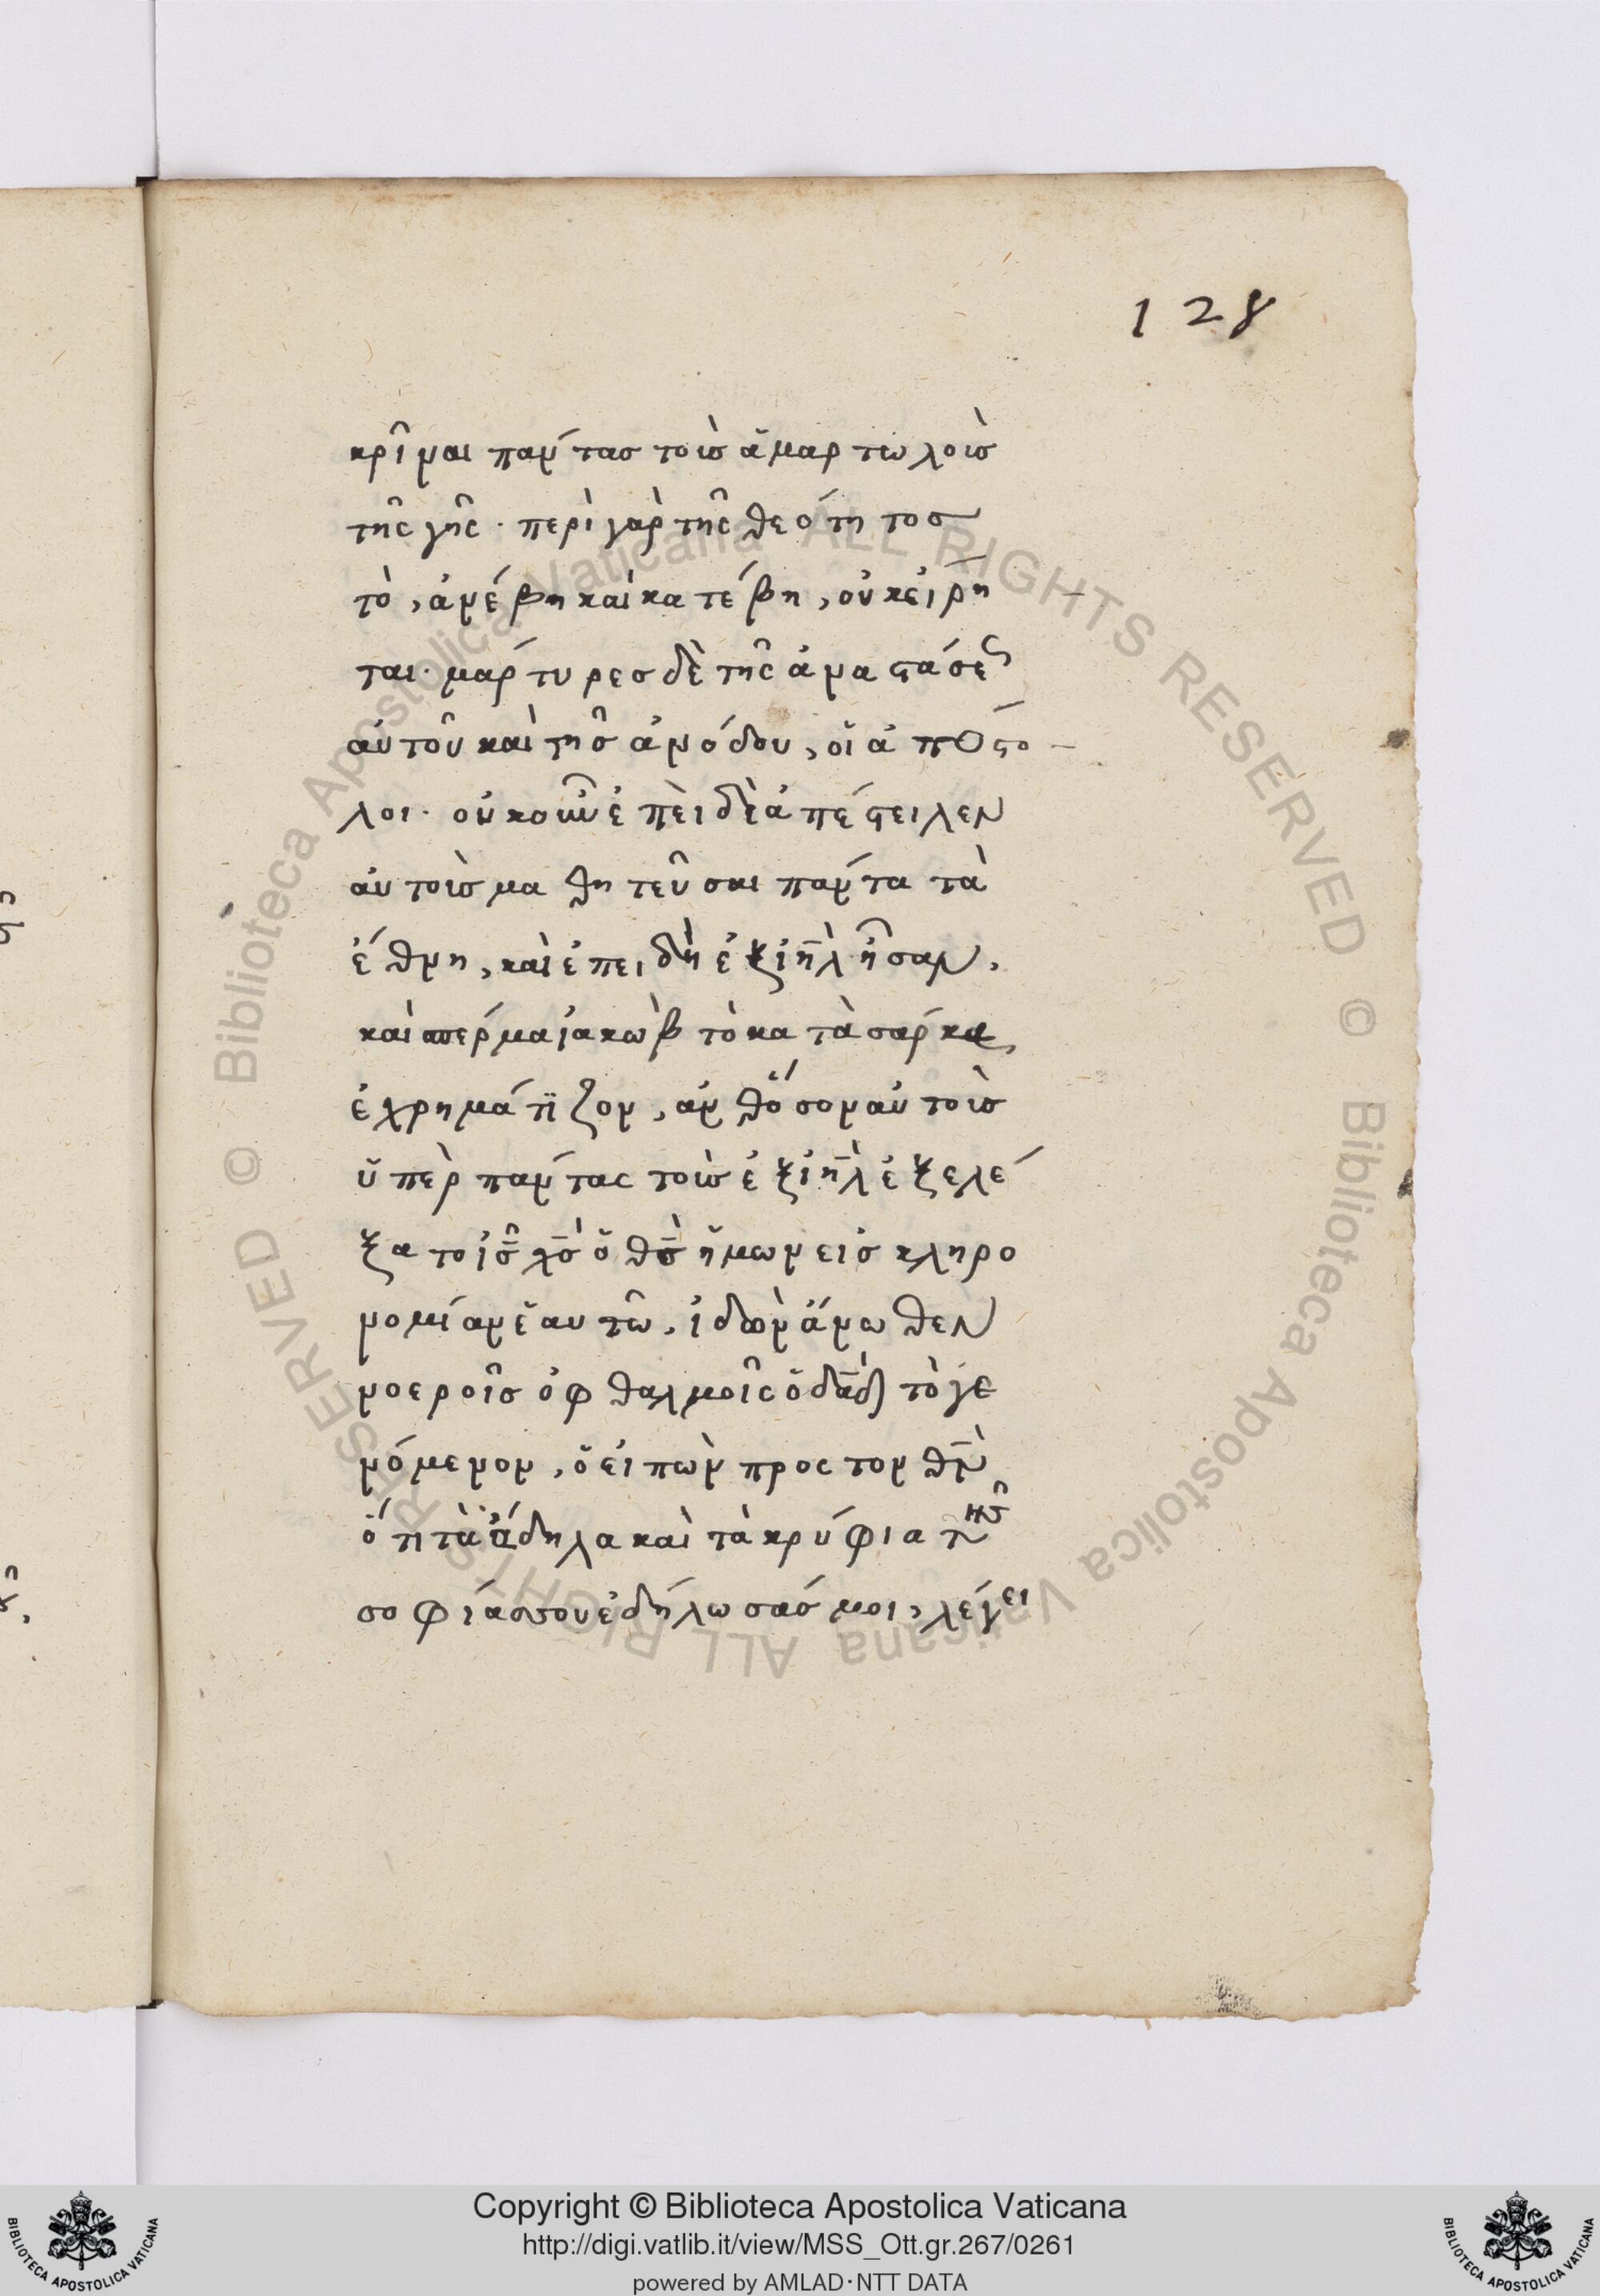 128
κρῖναι πάντας τοὺς ἁμαρτωλοὺς
τῆς γῆς · περὶ γὰρ τῆς θεότητος
τὸ, ἀνέβη καὶ κατέβη, οὐκ εἴρη
ται · μάρτυρες δὲ τῆς ἀναστάσεως
αὐτοῦ καὶ τῆς ἀνόδου, οἱ ἀπόστο
λοι · οὐκοῦν ἐπεὶ δὲ ἀπέστειλεν
αὐτοὺς μαθητεῦσαι πάντα τὰ
ἔθνη, καὶ ἐπειδὴ ἐξ ιη̅λ ἦσαν,
καὶ σπέρμα ἰακὼβ τὸ κατὰ σάρκα,
ἐχρημάτιζον, ἀνθ᾽ ὅσον αὐτοὺς
ὑπὲρ πάντας τοὺς ἐξ ιη̅λ ἐξελέ
ξατο ι̅ς̅ χ̅ς̅ ὁ θ̅ς̅ ἡμων εἰς κληρο
νομίαν ἑαυτῶ, ἰδὼν ἄνωθεν
νοεροῖς ὀφθαλμοῖς ὁ δα̅δ̅ τὸ γε
νόμενον, ὁ εἰπὼν προς τον θ̅ν̅
ὅτι τὰ ἄδηλα καὶ τὰ κρύφια τῆς
σοφίας σου ἐδήλωσάς μοι, λέγει
Copyright © Biblioteca Apostolica Vaticana
http://digi.vatlib.it/view/MSS_Ott.gr.267/0261
powered by AMLAD·NTT DATA
BIBLIOTECA APOSTOLICA VATICANA
BIBLIOTECA APOSTOLICA VATICANA
© Biblioteca Apostolica Vaticana ALL RIGHTS RESERVED © Biblioteca Apostolica Vaticana ALL RIGHTS RESERVED